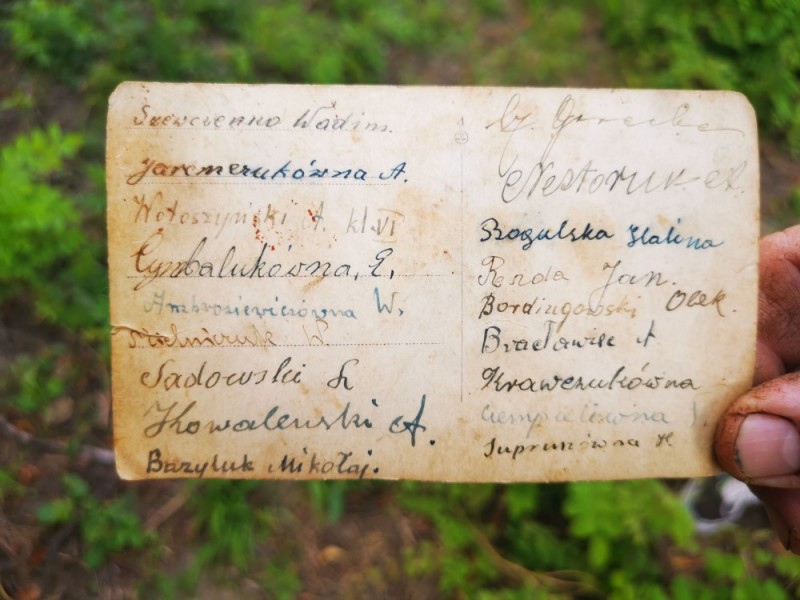 Szewczenko Wadim.
Jaremczukówna A.
Wołoszyński A. kl. VI
Cymbalukówna, E,
Ambroziewiczówna W.
Mielniczuk W
Sadowski L
Kowalewski A.
Bazyluk Mikołaj.
Nestoruk A.
Rogulska Halina
Renda Jan.
Bordziugowski Olek.
Bracławiec A
Krawczukówna
Suprunówna H